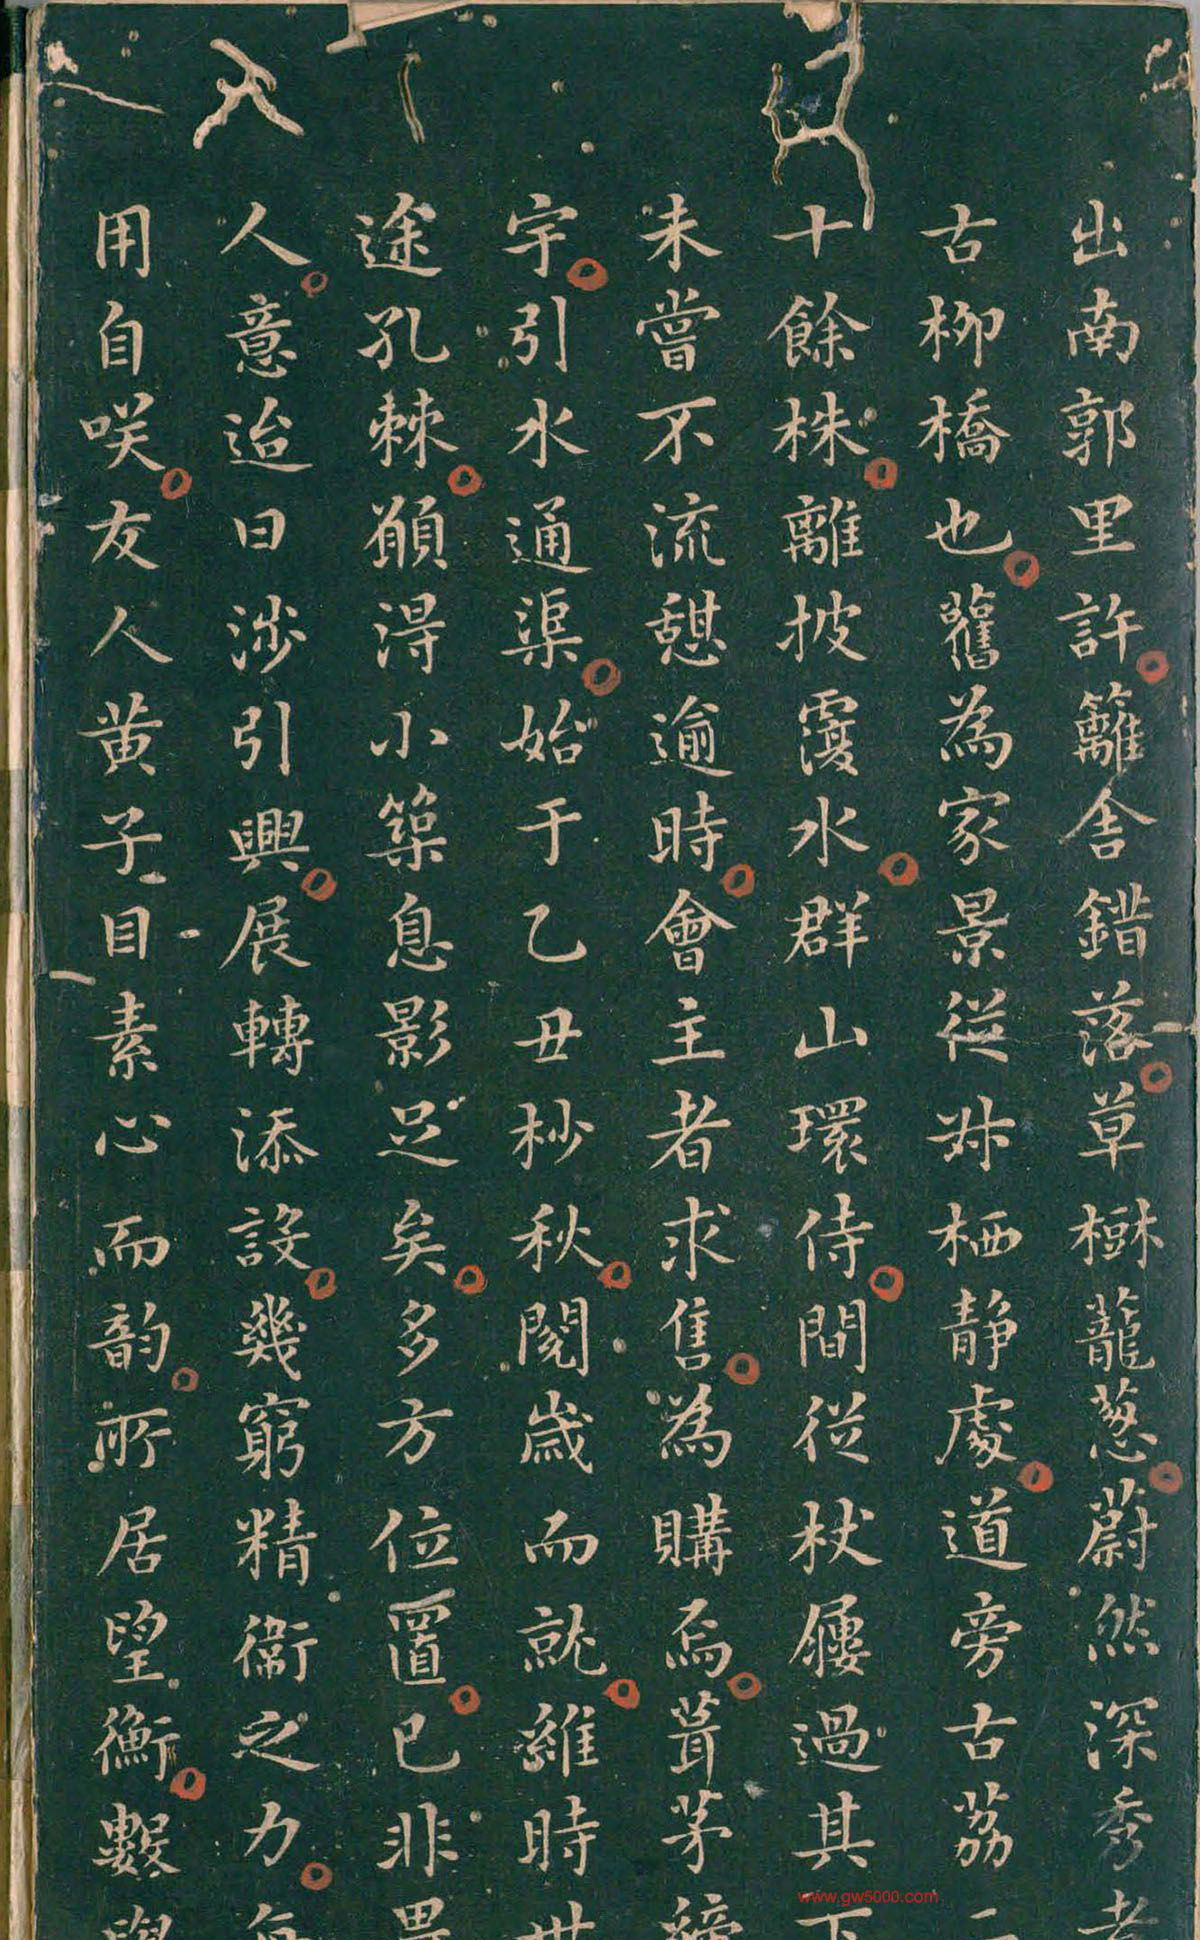 出南郭里許籬舍錯落草樹蘢蔥蔚然深秀者
古柳橋也舊為家景從叔栖靜處道旁古荔二
十餘株離披覆水群山環侍間從杖屨過其下
未嘗不流憩逾時會主者求售為購焉葺茅
宇引水通渠始于乙丑杪秋閱歲而就維時世
途孔棘願得小築息影足矣多方位置已非
人意迨日涉引興展轉添設幾窮精衞之力
用自咲友人黄子目素心而韵所居望衡數
www.gw5000.com